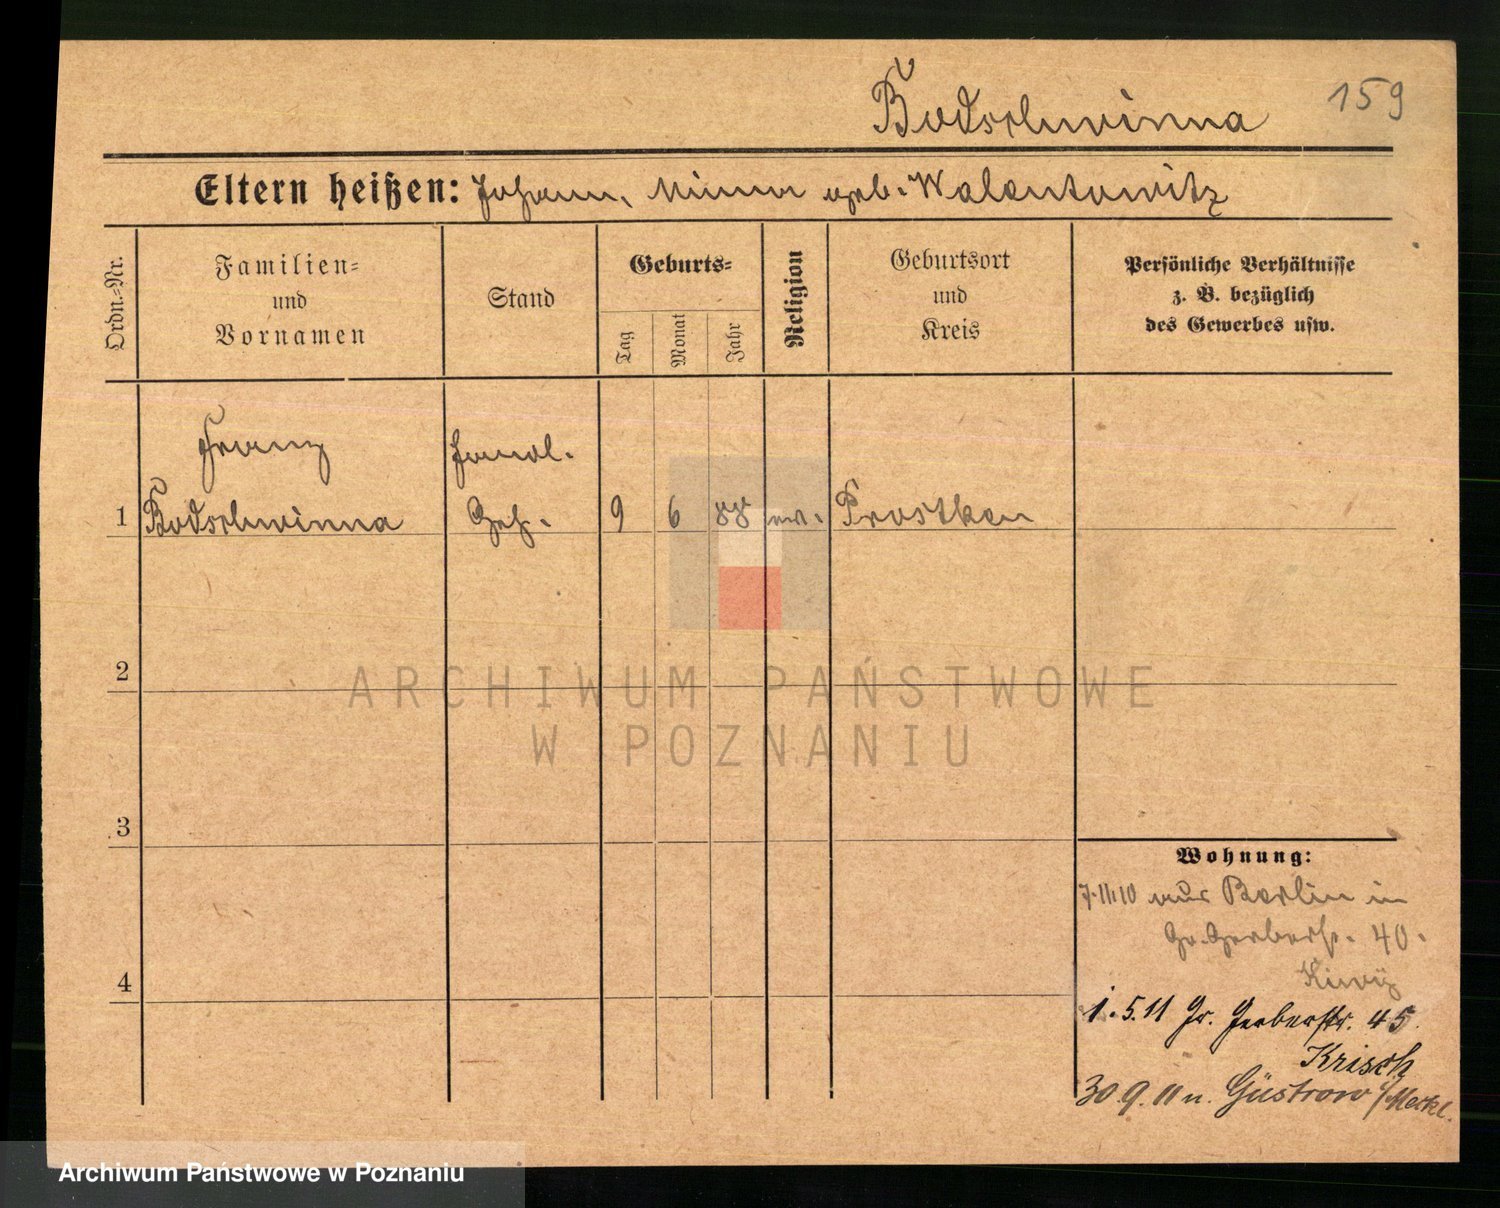 Bodschwinna
159
Eltern heißen: Johann, Minna geb. Walentowitz
Ordn.-Nr.
Familien-
und
Vornamen
Stand
Geburts-
Tag
Monat
Jahr
Religion
Geburtsort
und
Kreis
Persönliche Verhältnisse
z. B. bezüglich
des Gewerbes usw.
Franz Handl.
1 Bodschwinna Geh. 9 6 88 ev. Prostken
2
3
4
Wohnung:
7.11.10 aus Berlin in
Gr. Gerberstr. 40.
1.5.11 Gr. Gerberstr. 45.
Krisch
30.9.11 n. Güstrow i/Meckl.
ARCHIWUM PAŃSTWOWE
W POZNANIU
Archiwum Państwowe w Poznaniu